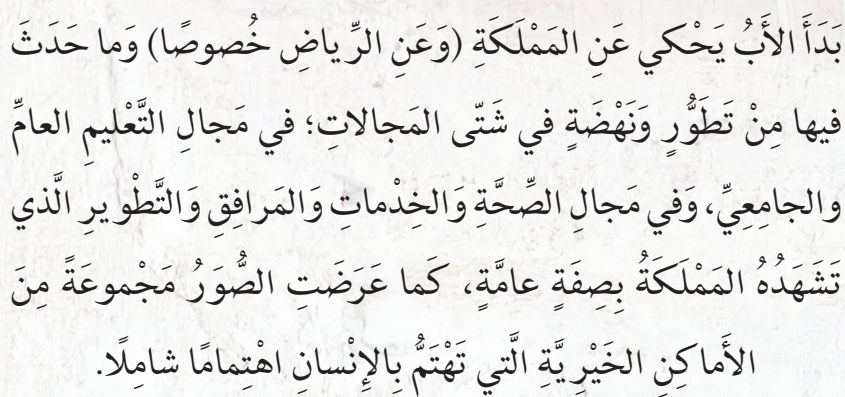 بَدَأَ الأَبُ يَحْكي عَنِ المَمْلَكَةِ (وَعَنِ الرِّياضِ خُصوصًا) وَما حَدَثَ
فيها مِنْ تَطَوُّرٍ وَنَهْضَةٍ في شَتّى المَجالاتِ؛ في مَجالِ التَّعْليمِ العامِّ
والجامِعِيِّ، وَفي مَجالِ الصِّحَّةِ وَالخِدْماتِ وَالمَرافِقِ وَالتَّطْويرِ الَّذي
تَشَهَدُهُ المَمْلَكَةُ بِصِفَةٍ عامَّةٍ، كَما عَرَضَتِ الصُّوَرُ مَجْموعَةً مِنَ
الأَماكِنِ الخَيْرِيَّةِ الَّتي تَهْتَمُّ بِالإِنْسانِ اهْتِمامًا شامِلًا.